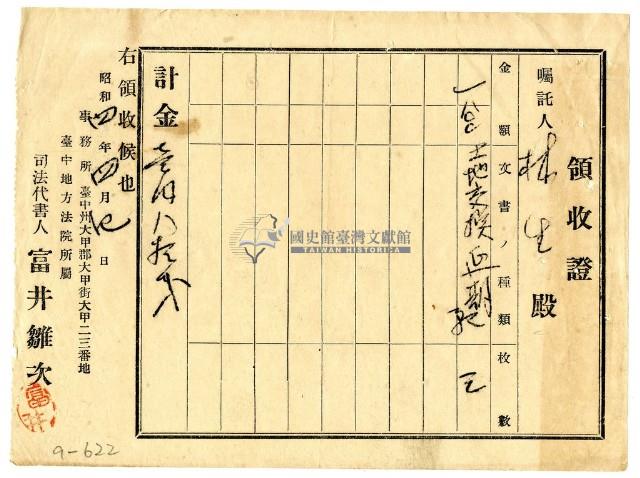 領收證
囑託人 林生 殿
金額 文書ノ種類 枚數
土地交換延期
計金 壱円八拾
右領收候也
昭和四年四月 日
事務所 臺中州大甲郡大甲街大甲二三番地
臺中地方法院所屬
司法代書人 富井雛次
富井
國史館臺灣文獻館
TAIWAN HISTORICA
9-622